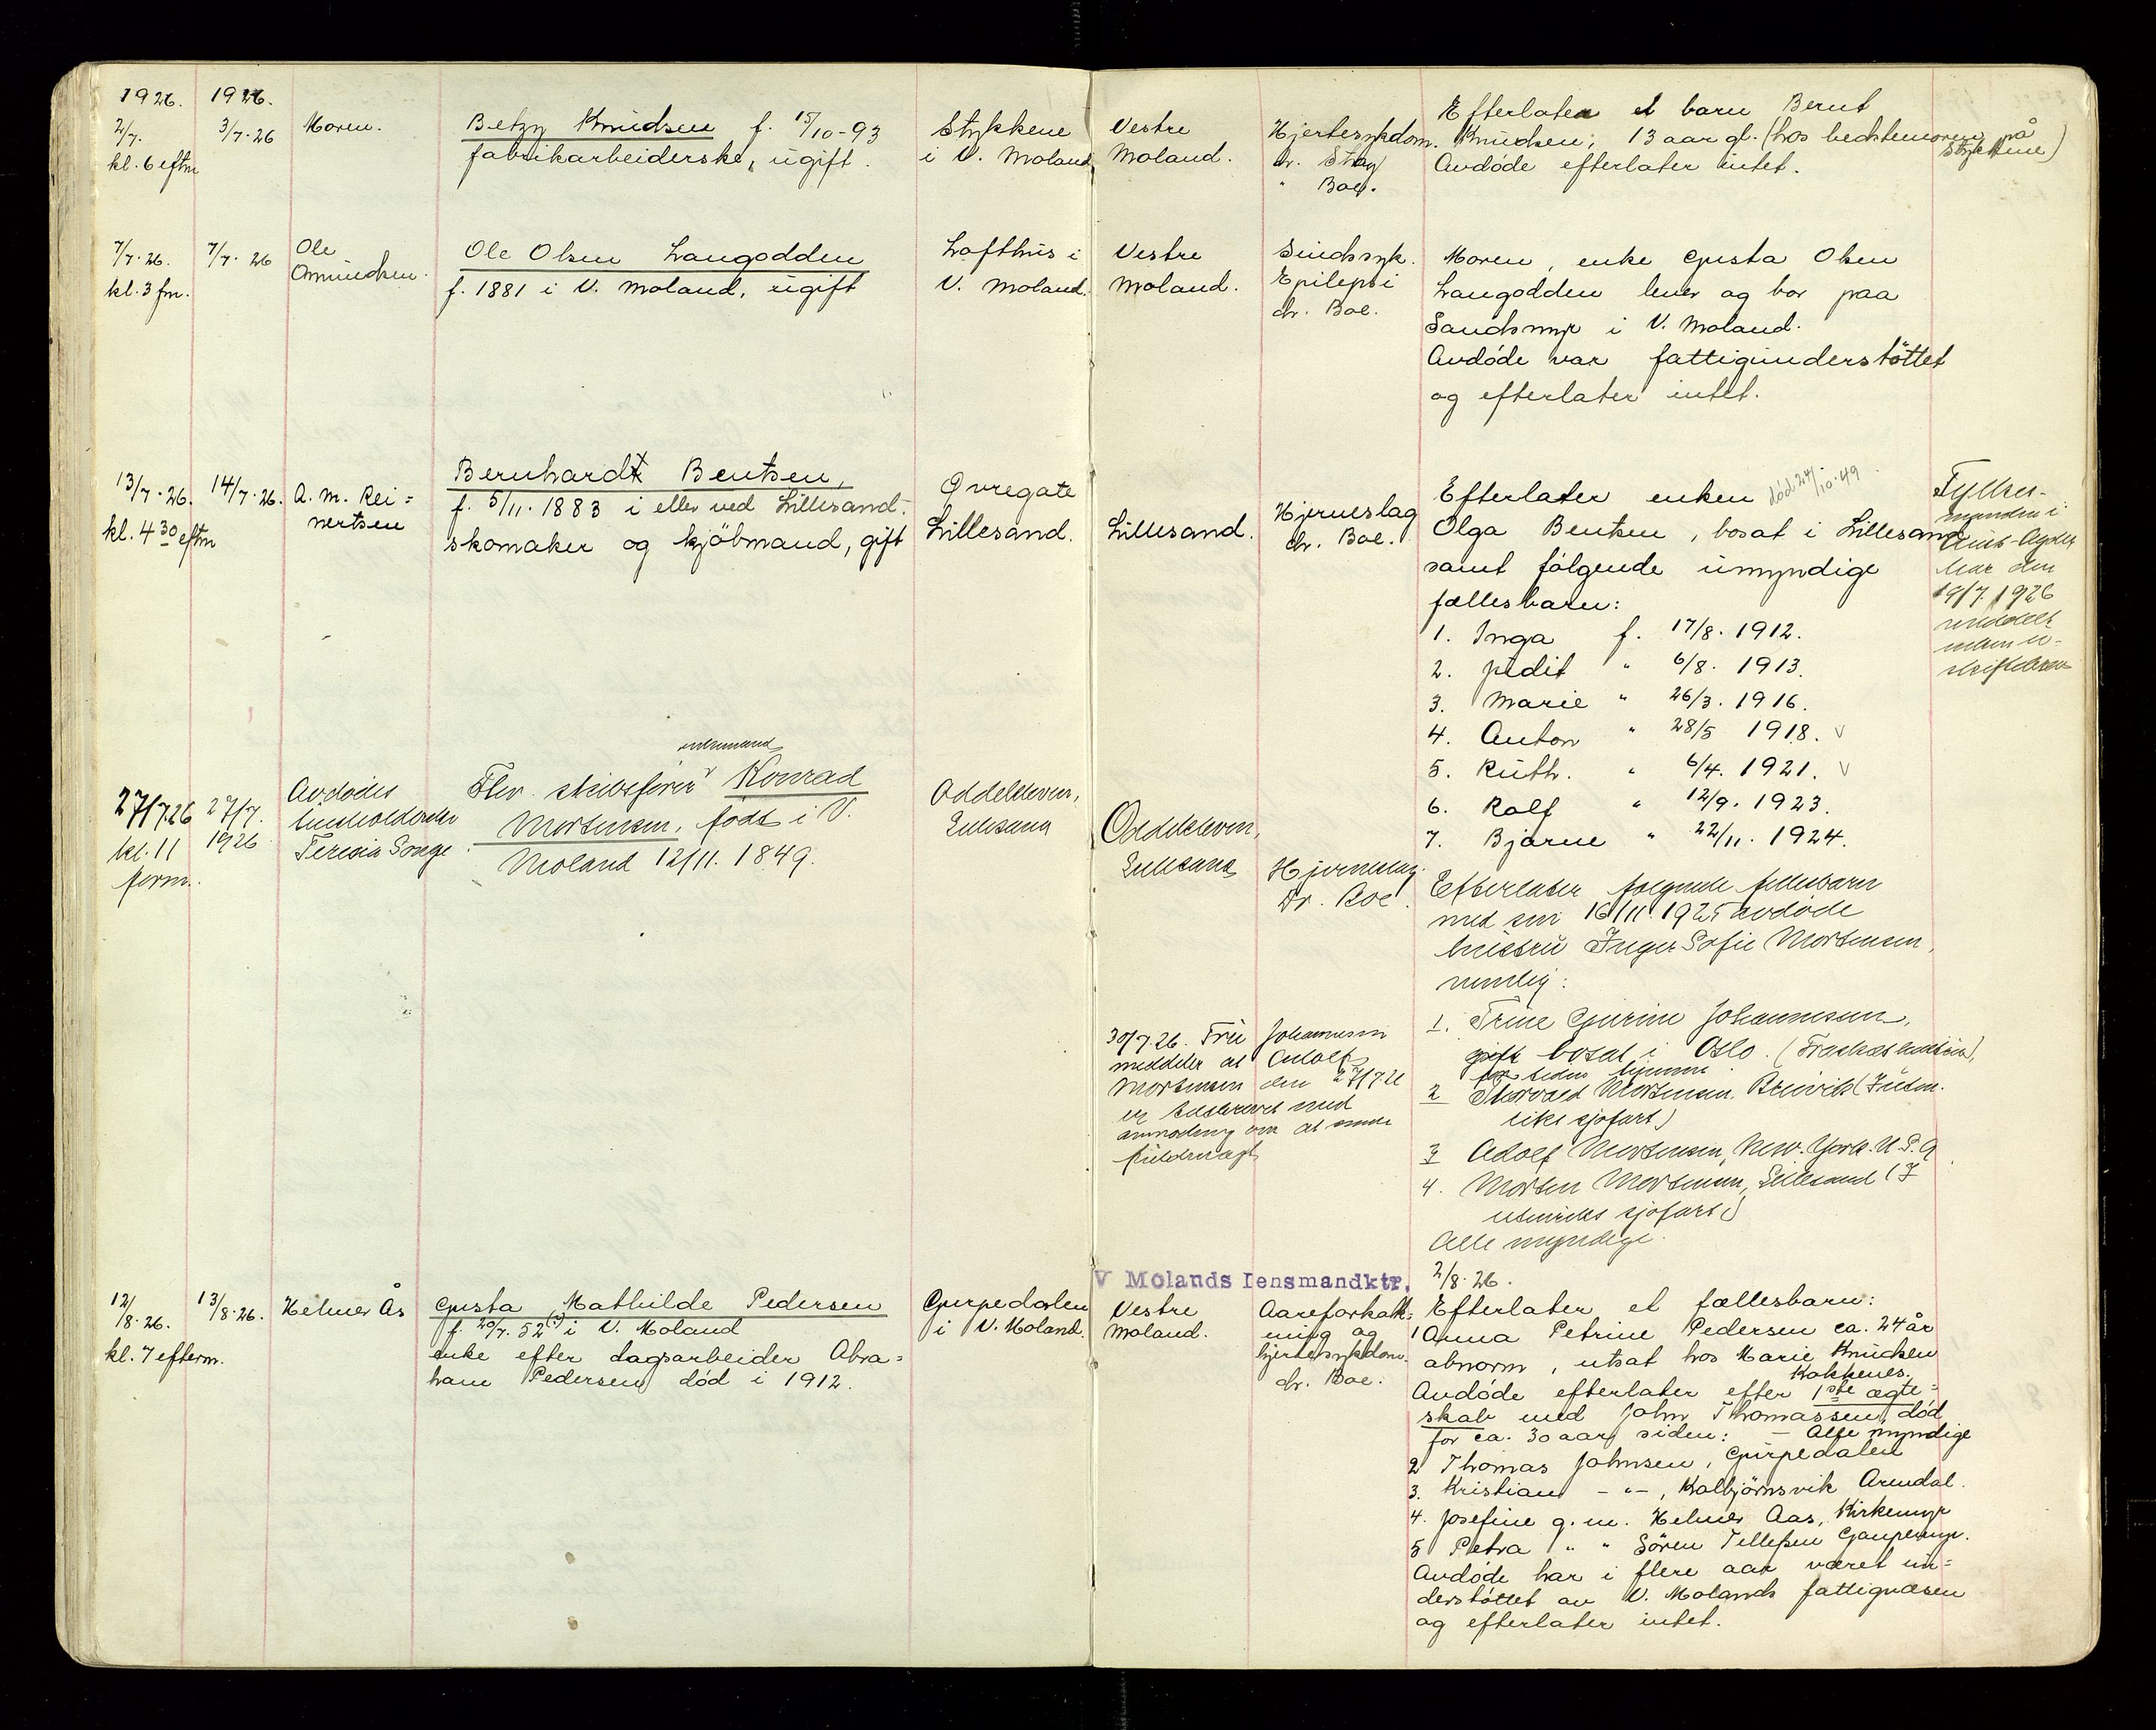 1926. 1926.
2/7. 3/7-26 Moren. Betzy Knudsen f. 15/10-93 Stykkene Vestre Hjertesykdom. Efterlater et barn Bernt
kl. 6 eftm fabrikarbeiderske, ugift. i V. Moland Moland. dr. Knudsen; 13 aar gl. (hos bedstemoren på
" Boe. Avdöde efterlater intet. Stykkene)
7/7. 26. 7/7. 26 Ole Ole Olsen Langodden Lofthus i Vestre Sindsyk. Moren, enke Gusta Olsen
kl. 3 fm. Omundsen. f. 1881 i V. Moland, ugift V. Moland. Moland. Epilepsi Langodden lever og bor paa
dr. Boe. Sandsmyr i V. Moland.
Avdöde var fattigunderstöttet
og efterlater intet.
13/7. 26. 14/7. 26. A. M. Rei= Bernhardt Bentsen, Övregate Hjerneslag Efterlater enken död 24/10.49
kl. 4 30 eftm nertsen f. 5/11. 1883 i eller ved Lillesand. Lillesand. Lillesand. dr. Boe. Olga Bentsen, bosat i Lillesand
skomaker og kjöbmand, gift samt fölgende umyndige
fællesbarn:
1. Inga f. 17/8. 1912.
2. Judit " 6/8. 1913.
3. Marie " 26/3. 1916.
4. Anton " 28/5 1918. v
5. Ruth. " 6/4. 1921. v
6. Rolf " 12/9. 1923.
7. Bjarne " 22/11. 1924.
Fylkes-
manden i
Aust-Agder
har den
19/7. 1926
meddelt
enken u-
skiftebev.
27/7.26 27/7. Avdödes Fhv. skibsförer enkemand Konrad Oddekleven, Oddekleven, Hjerneslag.
kl. 11 1926 husholderske Mortensen, födt i V. Lillesand Lillesand Dr. Boe.
form. Teresia Songe. Moland 12/11. 1849.
Efterlater fölgende fellesbarn
med sin 16/11. 1925 avdöde
hustru Inger Sofie Mortensen,
nemlig:
1. Trine Gurine Johannessen,
gift bosat i Oslo.
for tiden hjemme
2 Thorvald Mortensen, (Inden-
riks sjöfart)
3 Adolf Mortensen, New. York. U.S.A.
4. Morten Mortensen, Lillesand (I
utenriks sjöfart)
Alle myndige.
30/7.26. Fru Johannessen
meddeler at Adolf
Mortensen den 27/7.26
er tilskrevet med
anmodning om at sende
fuldmagt
V Molands lensmandktr. 2/8. 26.
12/8.26. 13/8.26. Helmer Ås Gusta Mathilde Pedersen Gurpedalen Vestre Aareforkalk= Efterlater et fællesbarn:
kl. 7 efterm. f. 20/7. 52 (?) i V. Moland i V. Moland. Moland. ning og 1 Anna Petrine Pedersen ca. 24 år
enke efter dagsarbeider Abra= hjertesykdom. abnorm, utsat hos Marie Knudsen
ham Pedersen död i 1912. dr. Boe. Kokkenes.
Avdöde efterlater efter 1ste ægte=
skab med John Thomassen, död
for ca. 30 aar siden: — Alle myndige
2 Thomas Johnsen, Gurpedalen
3. Kristian - " -, Kolbjörnsvik Arendal.
4. Josefine g. m. Helmer Aas, Kirkemyr
5 Petra " " Sören Tellefsen Gaupemyr.
Avdöde har i flere aar været un=
derstöttet av V. Molands fattigvæsen
og efterlater intet.